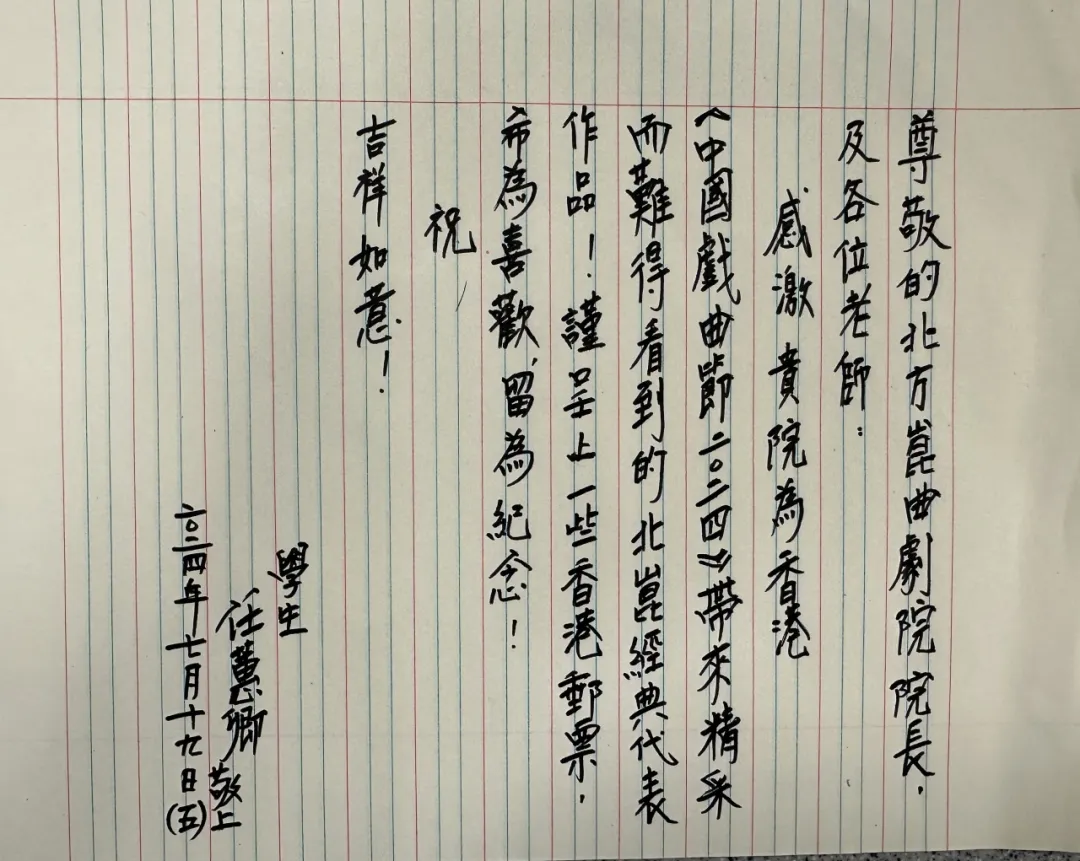 尊敬的北方崑曲劇院院長，
及各位老師：
感激 貴院為香港
《中國戲曲節二〇二四》帶來精采
而難得看到的北崑經典代表
作品！謹呈上一些香港郵票，
希為喜歡，留為紀念！
祝
吉祥如意！
學生
任蕙卿 敬上
二〇二四年七月十九日(五)